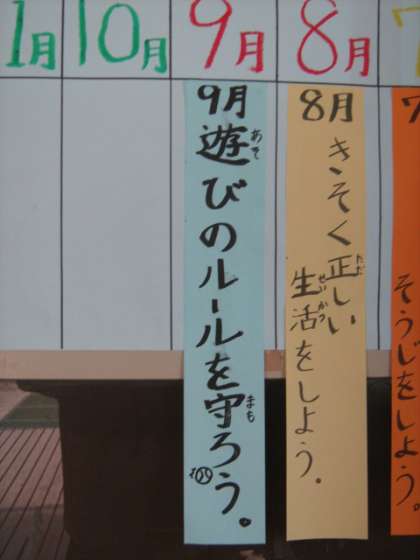 1月 10月 9月 8月 7
9月 遊びのルールを守ろう。
あそ
まも
8月 きそく正しい
ただ
生活をしよう。
せいかつ
7
そうじをしよう。